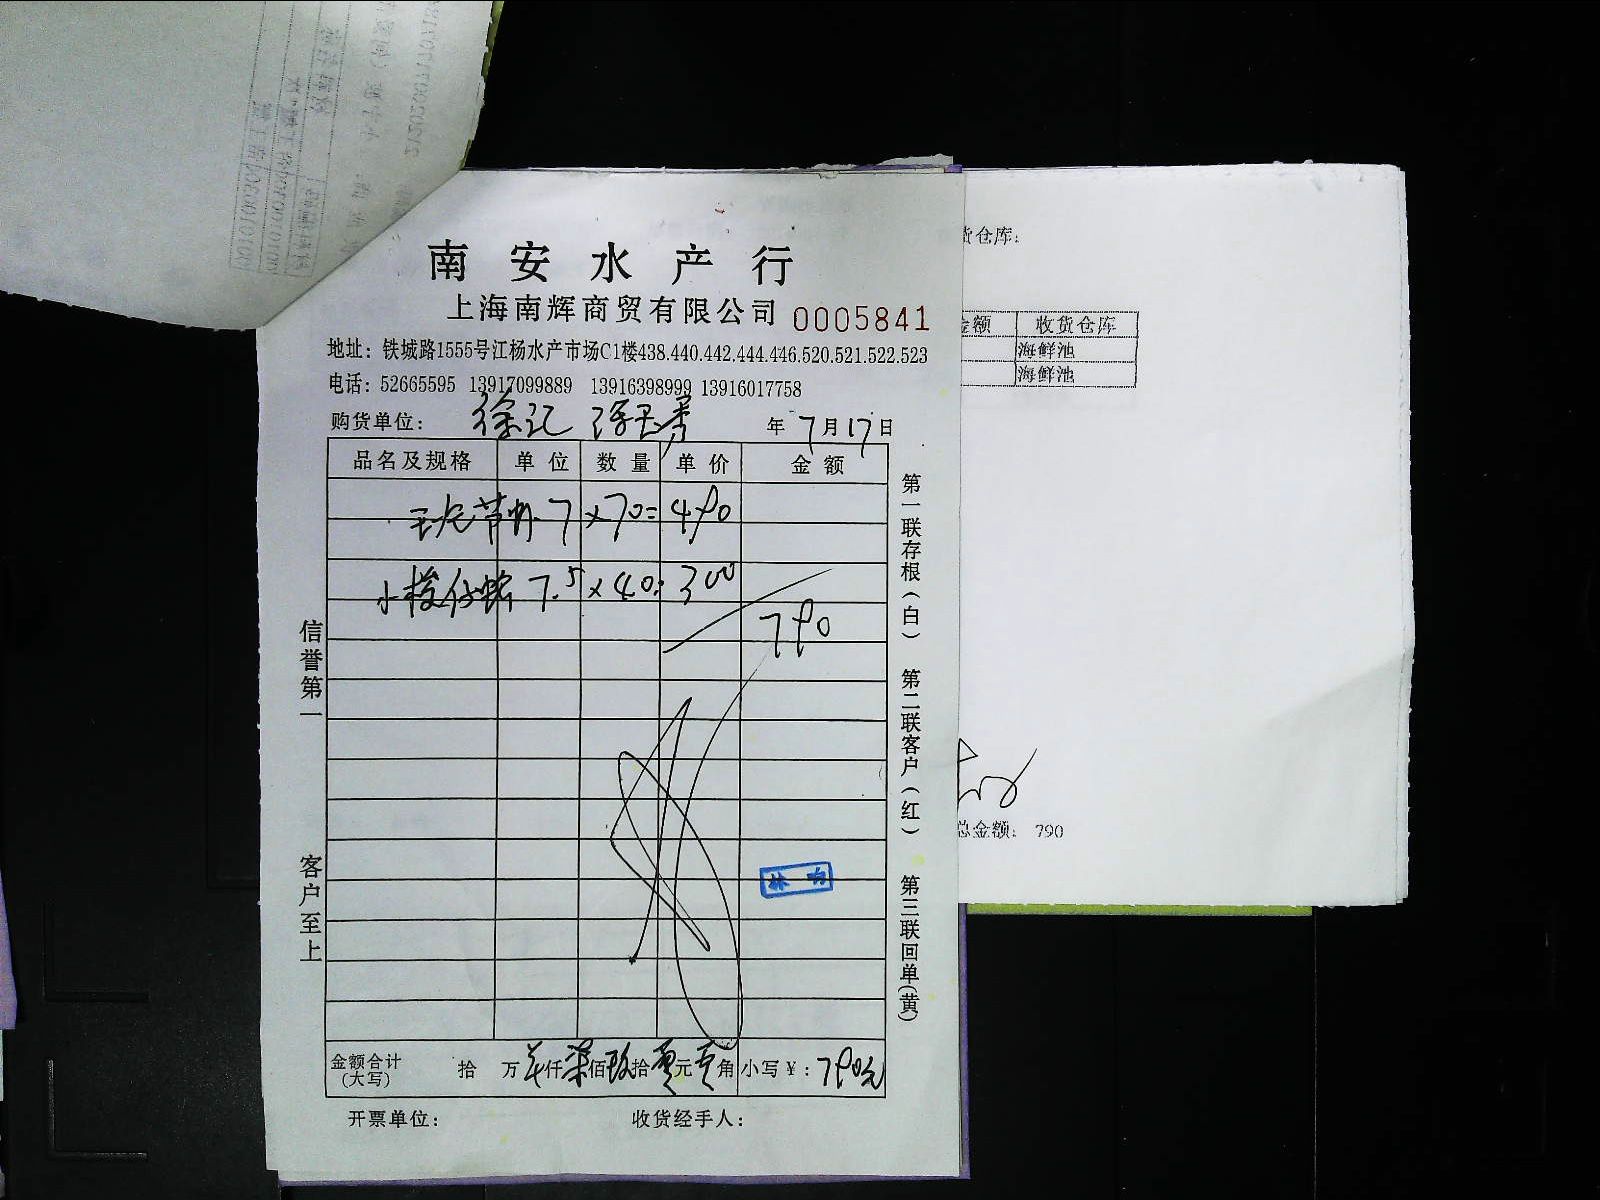 南安水产行
上海南辉商贸有限公司 0005841
地址：铁城路1555号江杨水产市场C1楼438.440.442.444.446.520.521.522.523
电话：52665595 13917099889 13916398999 13916017758
购货单位： 徐记 年 7月17日
品名及规格 单位 数量 单价 金额
7 ×70= 490
小 7.5 ×40= 300
790
金额合计(大写) 拾 万 仟柒佰玖拾零元零角 小写￥：790元
开票单位： 收货经手人：
信誉第一
客户至上
第一联存根（白）
第二联客户（红）
第三联回单（黄）
货仓库：
金额 收货仓库
海鲜池
海鲜池
总金额： 790